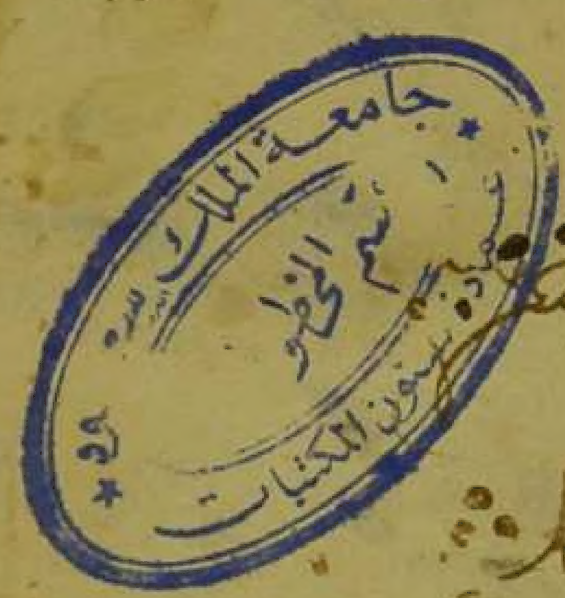 جامعة الملك سعود
قسم المخطو
عمادة شئون المكتبات